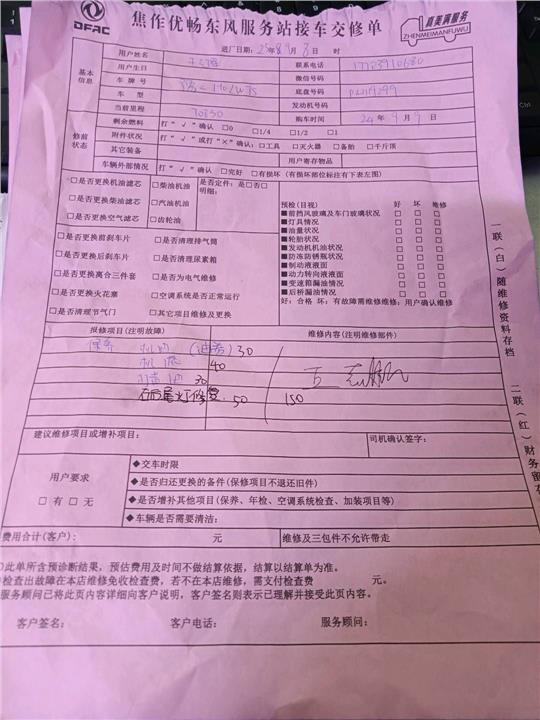 DFAC
焦作优畅东风服务站接车交修单
真美满服务
ZHENMEIMANFUWU
进厂日期: 年 月 3日 时
基本信息
用户姓名 联系电话
用户生日 微信号码
车牌号 底盘号码
车型 发动机号码
当前里程 70350 购车时间 24年9月 日
修前状态
剩余燃料 打“√”确认 □0 □1/4 □1/2 □1
附件状况 打“√或打“×”确认:□工具 □灭火器 □备胎 □千斤顶
其它装备 用户寄存物品
车辆外部情况 打“√”确认 □完好 □有损坏(有损坏部位标注有下表左图)
□是否更换机油滤芯 □柴油机油 是否定件:是□否□
□是否更换柴油滤芯 □汽油机油 明细:
□是否更换空气滤芯 □齿轮油
□是否更换前刹车片 □是否清理排气筒
□是否更换后刹车片 □是否清理尿素箱
□是否更换离合三件套 □是否为电气维修
□是否更换火花塞 □空调系统是否正常运行
□是否清理节气门 □其它项目维修及更换
预检(目视) 好 坏 维修
■前挡风玻璃及车门玻璃状况 □ □ □
■灯具情况 □ □ □
■油量状况 □ □ □
■轮胎状况 □ □ □
■发动机机油状况 □ □ □
■防冻防锈瓶状况 □ □ □
■制动液液面 □ □ □
■动力转向液面 □ □ □
■变速箱漏油情况 □ □ □
■后桥漏油情况 □ □ □
好:合格 坏:有故障需维修维修:用户确认维修
报修项目(注明故障) 维修内容(注明维修部件)
保养 机油 30
机滤 40
30
右后尾灯修复 50 150
建议维修项目或增补项目: 司机确认签字:
用户要求
□有 □无
◆交车时限
◆是否归还更换的备件(保修项目不退还旧件)
◆是否增补其他项目(保养、年检、空调系统检查、加装项目等)
◆车辆是否需要清洁:
费用合计(客户): 元 维修及三包件不允许带走
此单所含预诊断结果,预估费用及时间不做结算依据,结算以结算单为准。
检查出故障在本店维修免收检查费,若不在本店维修,需支付检查费 元。
服务顾问已将此页内容详细向客户说明,客户签名则表示已理解并接受此页内容。
客户签名: 客户电话: 服务顾问:
一联(白)随维修资料存档
二联(红)财务留存